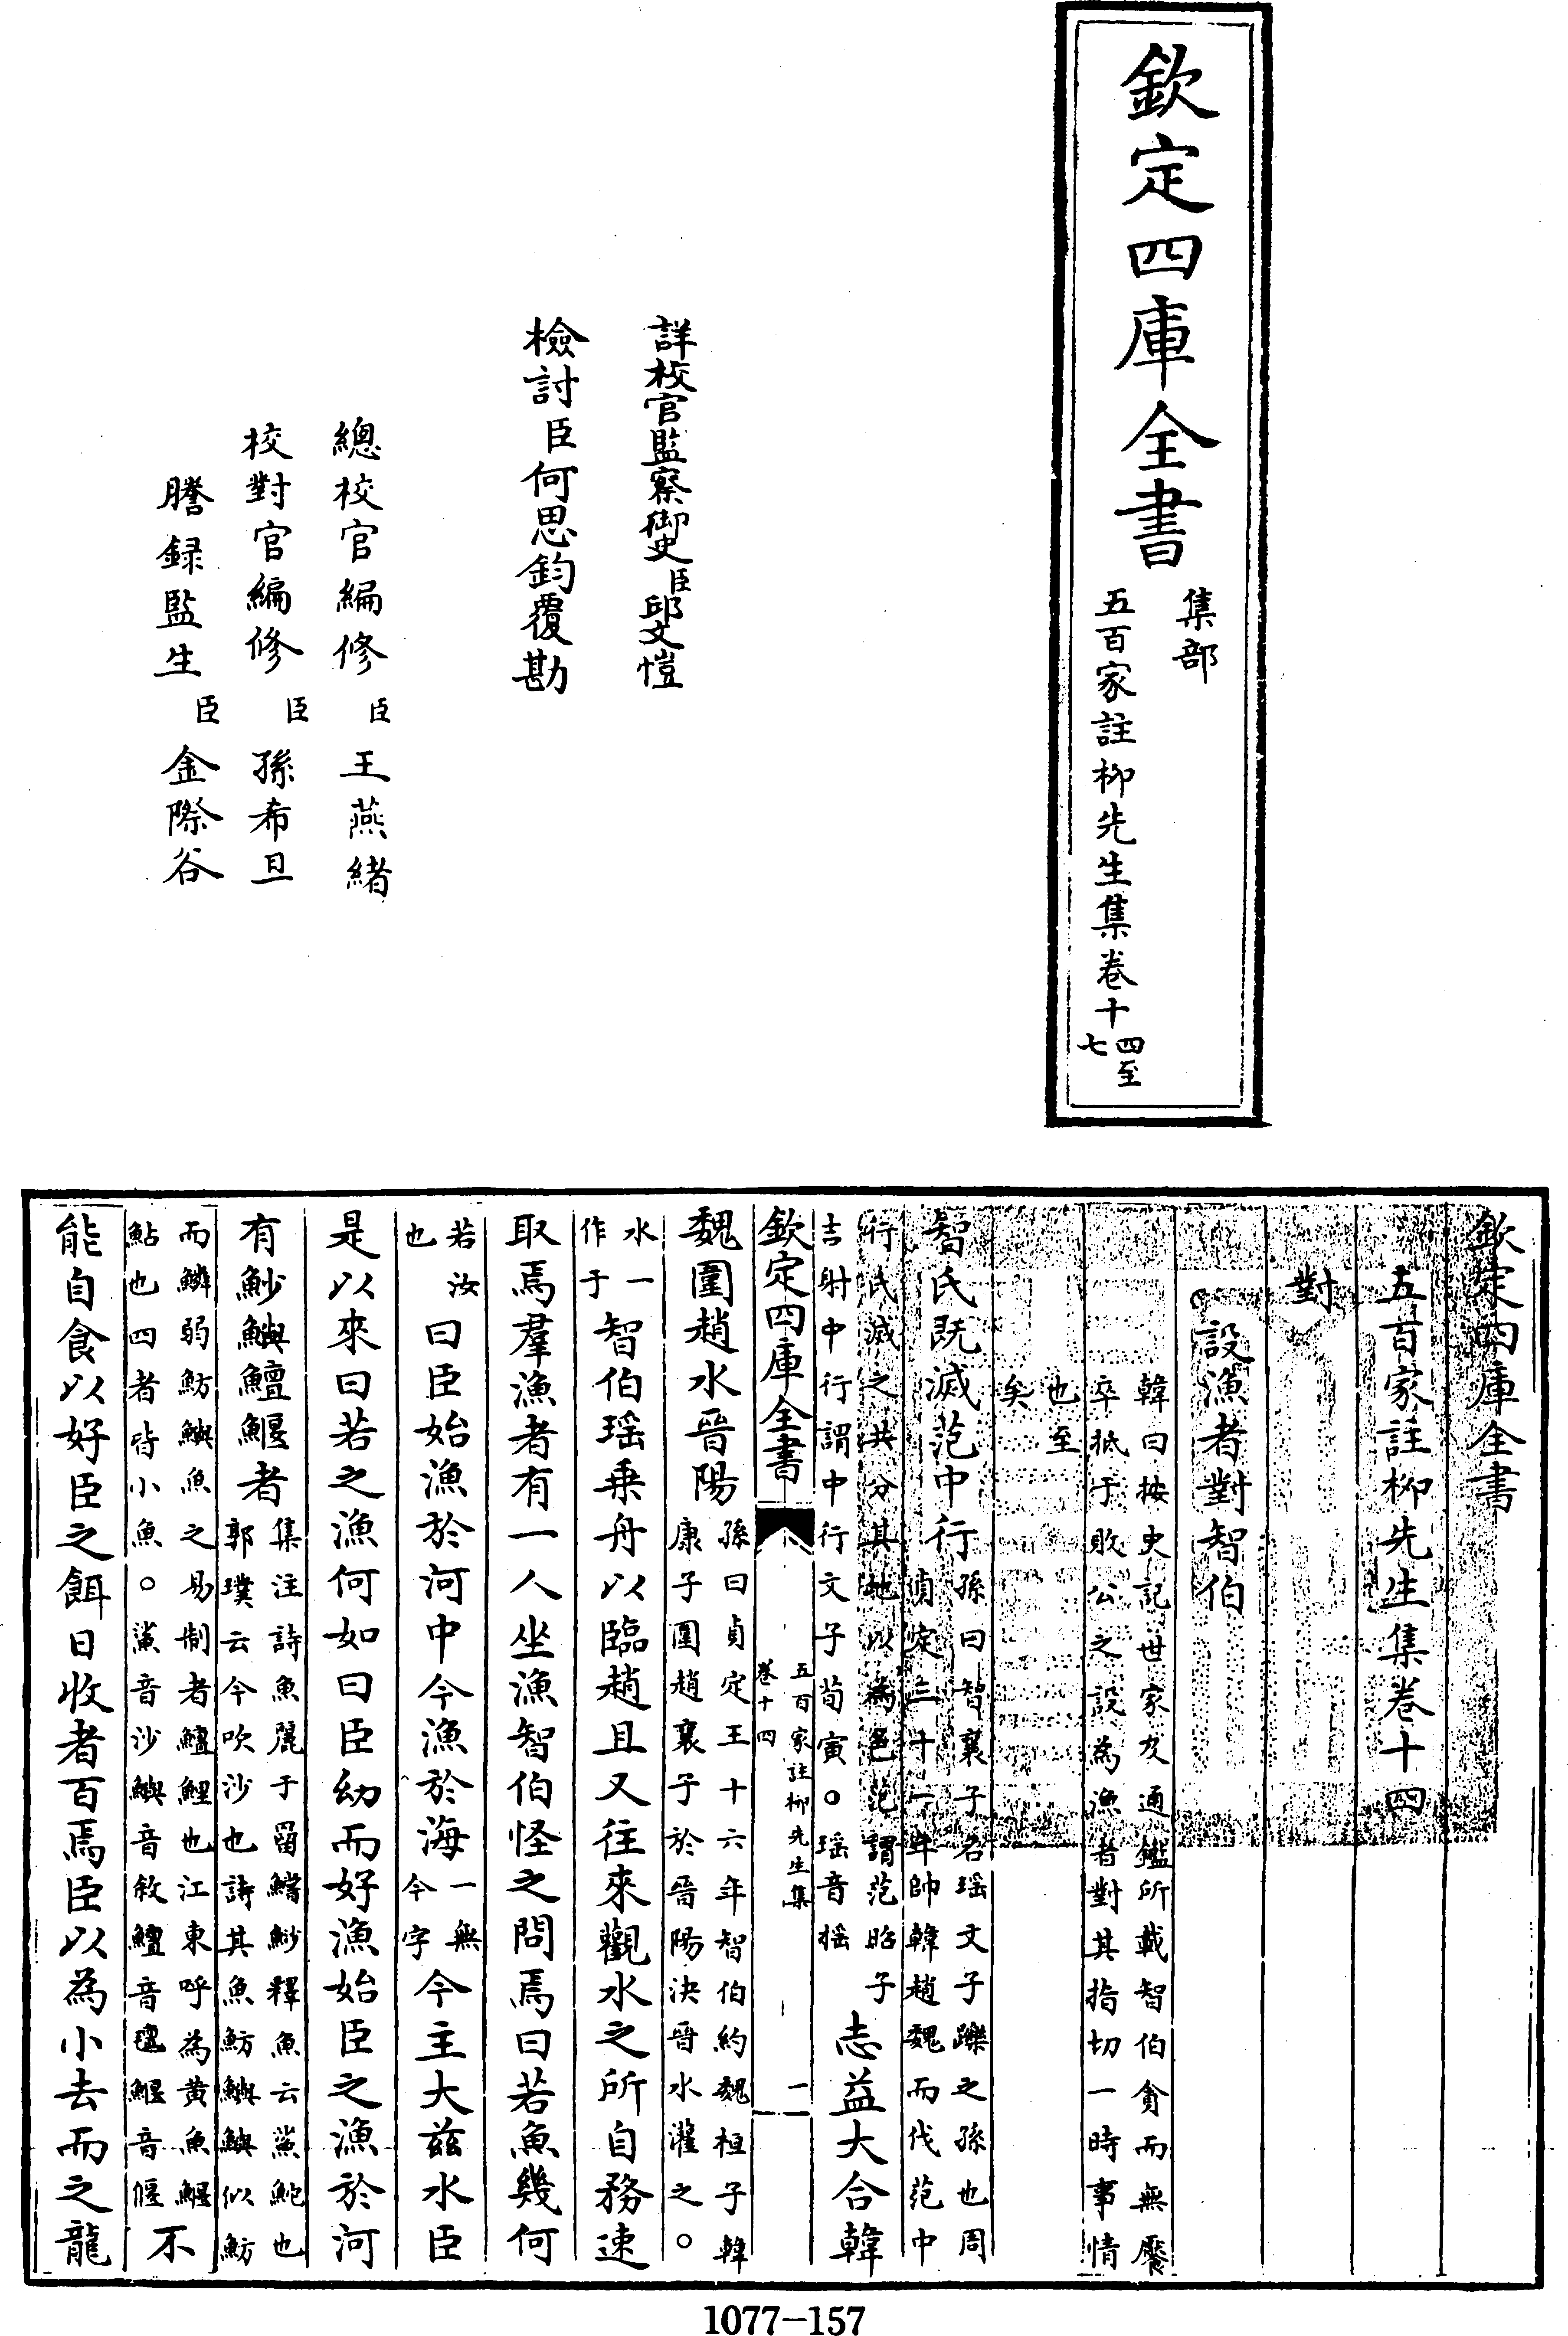 欽定四庫全書
集部
五百家註柳先生集卷十四至七
詳校官監察御史臣邱文愷
檢討臣何思鈞覆勘
總校官編修臣王燕緒
校對官編修臣孫希旦
謄録監生臣金際谷
欽定四庫全書
五百家註柳先生集卷十四
對
設漁者對智伯
韓曰按史記世家及通鑑所載智伯貪而無饜
卒抵于敗公之設為漁者對其指切一時事情
也至
矣
智氏既滅范中行
孫曰智襄子名瑶文子躒之孫也周
貞定二十六年帥韓趙魏而伐范中
行氏滅之共分其地以為邑范謂范昭子
吉射中行謂中行文子荀寅○瑶音揺
志益大合韓
欽定四庫全書
五百家註柳先生集
卷十四
一
魏圍趙水晉陽
孫曰貞定王十六年智伯約魏桓子韓
康子圍趙襄子於晉陽決晉水灌之○
水一
作于
智伯瑶乗舟以臨趙且又往來觀水之所自務速
取焉羣漁者有一人坐漁智伯怪之問焉曰若魚幾何
若汝
也
曰臣始漁於河中今漁於海
一無
今字
今主大茲水臣
是以來曰若之漁何如曰臣幼而好漁始臣之漁於河
有魦鱮鱣鰋者
集注詩魚麗于罶鱨魦釋魚云鯊鮀也
郭璞云今吹沙也詩其魚魴鱮鱮似魴
而鱗弱魴鱮魚之易制者鱣鯉也江東呼為黄魚鰋
鮎也四者皆小魚○鯊音沙鱮音敘鱣音邅鰋音偃
不
能自食以好臣之餌日收者百焉臣以為小去而之龍
1077-157